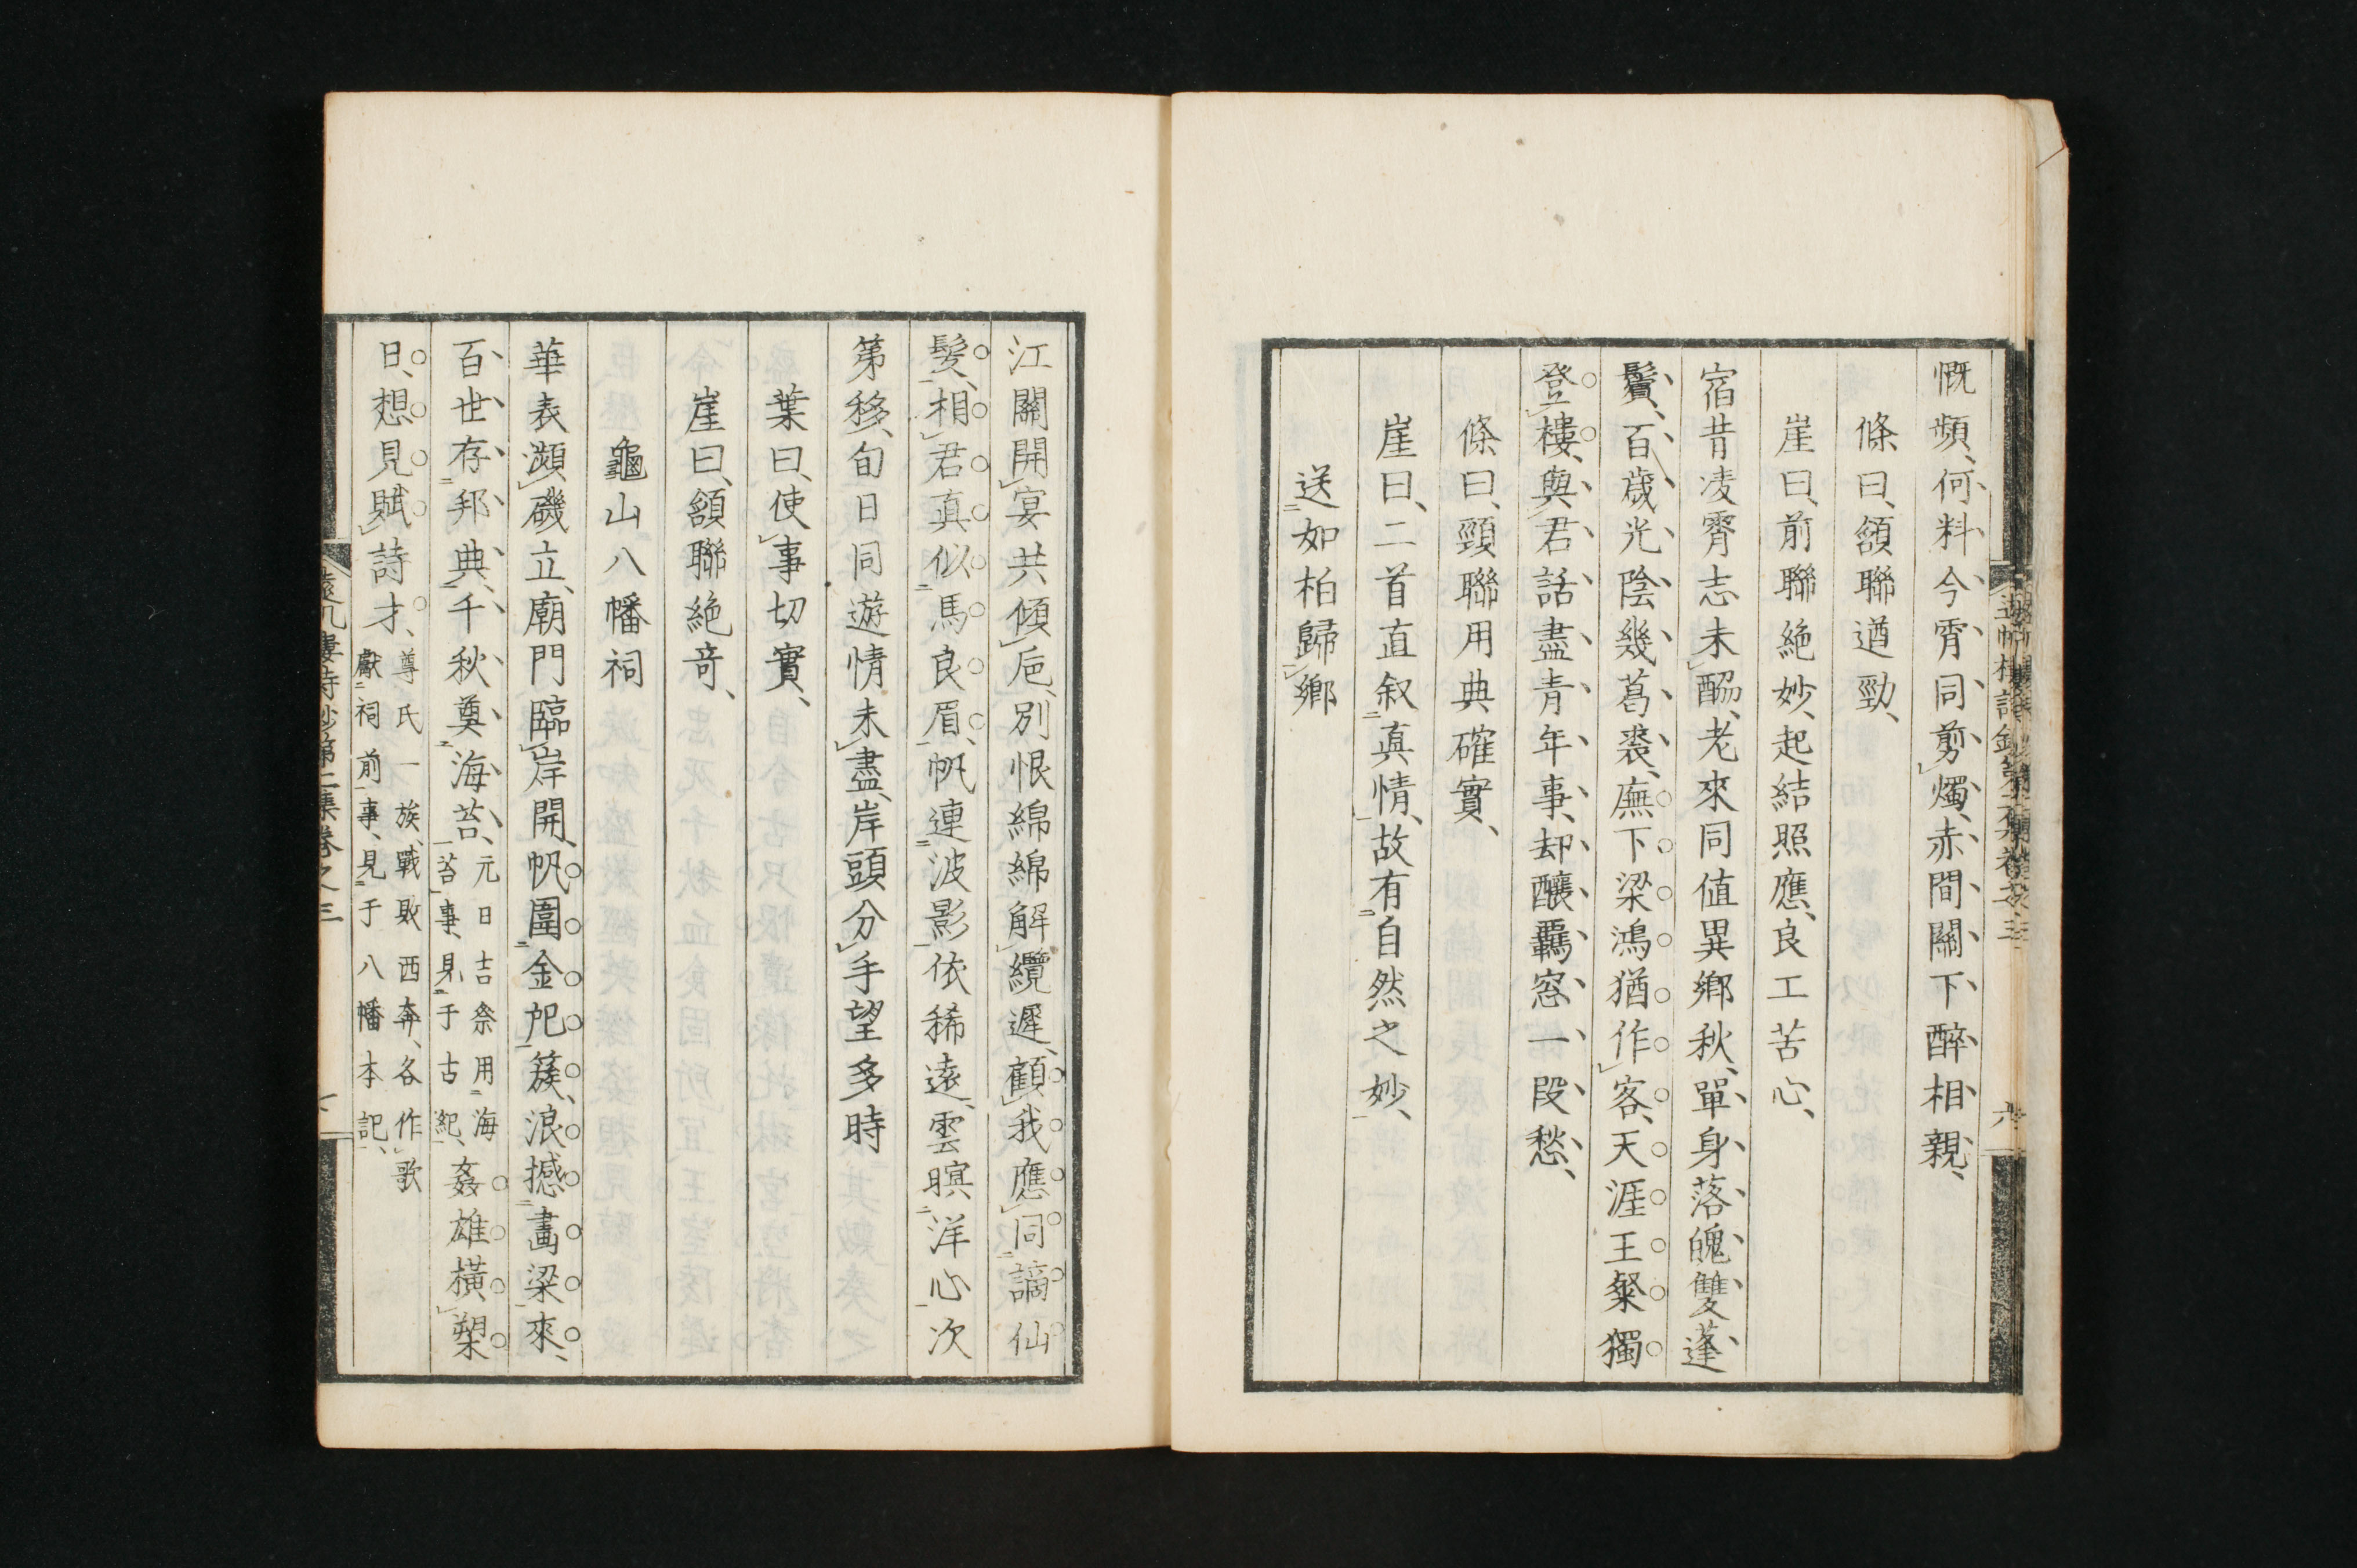 慨頻、何料今宵同剪燭、赤間關下醉相親、
條曰、頷聯遒勁、
崖曰、前聯絶妙、起結照應、良工苦心、
宿昔凌霄志未酬、老來同值異鄉秋、單身落魄雙蓬
鬢、百歲光陰幾葛裘、廡下梁鴻猶作客、天涯王粲獨
登樓、與君話盡青年事、却釀羈窓一段愁、
條曰、頸聯用典確實、
崖曰、二首直叙真情、故有自然之妙、
送如柏歸鄉
江關開宴共傾巵、別恨綿綿解纜遲、顧我應同謫仙
髮、相君真似馬良眉、帆連波影依稀遠、雲暝洋心次
第移、旬日同遊情未盡、岸頭分手望多時
葉曰、使事切實、
崖曰、頷聯絶奇、
龜山八幡祠
華表瀕磯立、廟門臨岸開、帆圍金𣏌簇、浪撼畫梁來、
百世存邦典、千秋奠海苔、元日吉祭用海苔、事見于古紀、姦雄橫槊
日、想見賦詩才、尊氏一族、戰敗西奔、各作歌獻祠前事、見于八幡本記、
遠帆樓詩鈔第二集卷之三